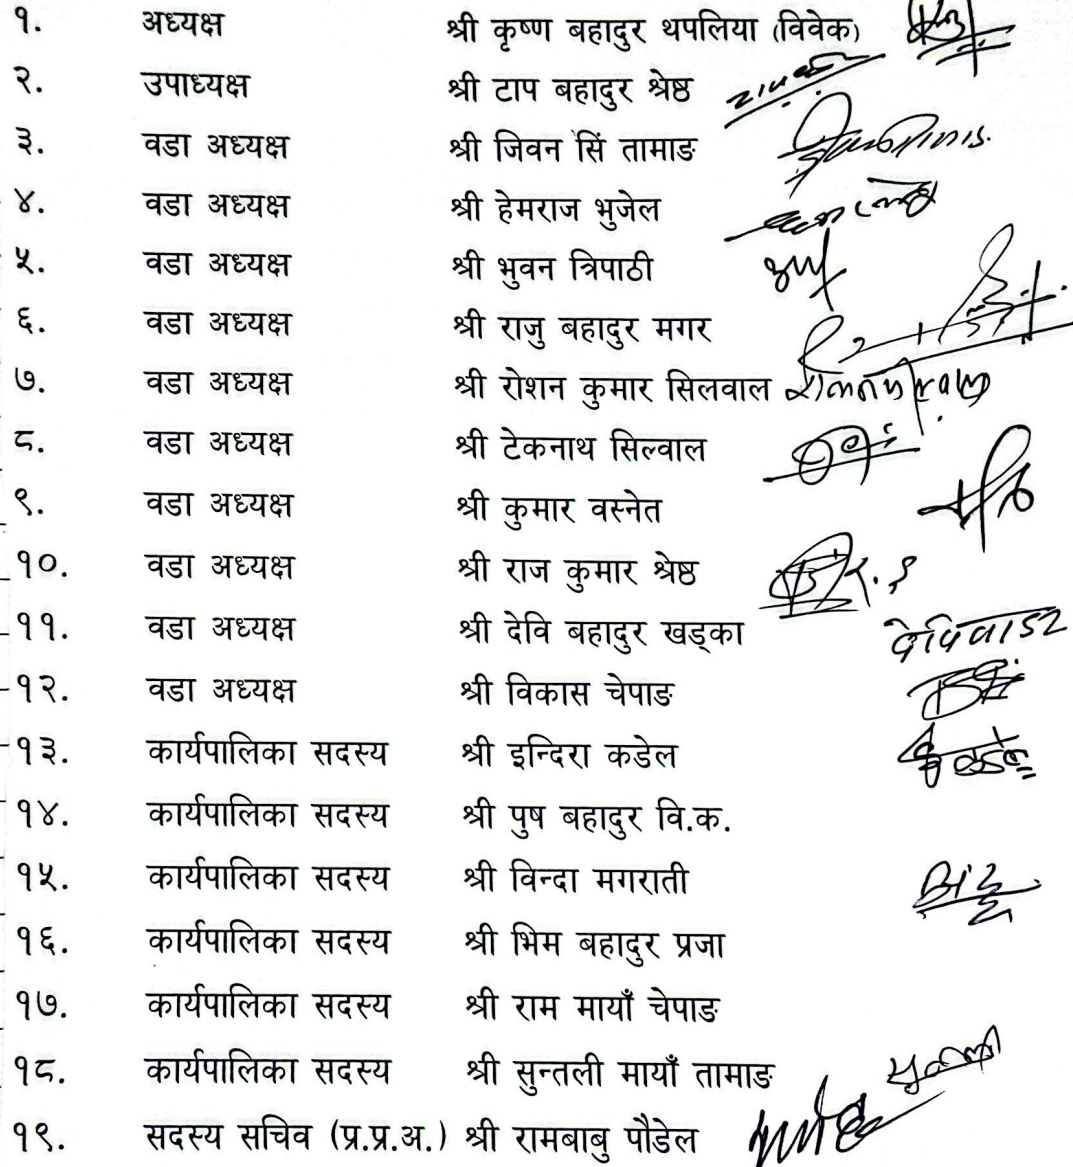 १. अध्यक्ष श्री कृष्ण बहादुर थपलिया (विवेक)
२. उपाध्यक्ष श्री टाप बहादुर श्रेष्ठ
३. वडा अध्यक्ष श्री जिवन सिं तामाङ
४. वडा अध्यक्ष श्री हेमराज भुजेल
५. वडा अध्यक्ष श्री भुवन त्रिपाठी
६. वडा अध्यक्ष श्री राजु बहादुर मगर
७. वडा अध्यक्ष श्री रोशन कुमार सिलवाल
८. वडा अध्यक्ष श्री टेकनाथ सिल्वाल
९. वडा अध्यक्ष श्री कुमार वस्नेत
१०. वडा अध्यक्ष श्री राज कुमार श्रेष्ठ
११. वडा अध्यक्ष श्री देवि बहादुर खड्का
१२. वडा अध्यक्ष श्री विकास चेपाङ
१३. कार्यपालिका सदस्य श्री इन्दिरा कडेल
१४. कार्यपालिका सदस्य श्री पुष बहादुर वि.क.
१५. कार्यपालिका सदस्य श्री विन्दा मगराती
१६. कार्यपालिका सदस्य श्री भिम बहादुर प्रजा
१७. कार्यपालिका सदस्य श्री राम मायाँ चेपाङ
१८. कार्यपालिका सदस्य श्री सुन्तली मायाँ तामाङ
१९. सदस्य सचिव (प्र.प्र.अ.) श्री रामबाबु पौडेल